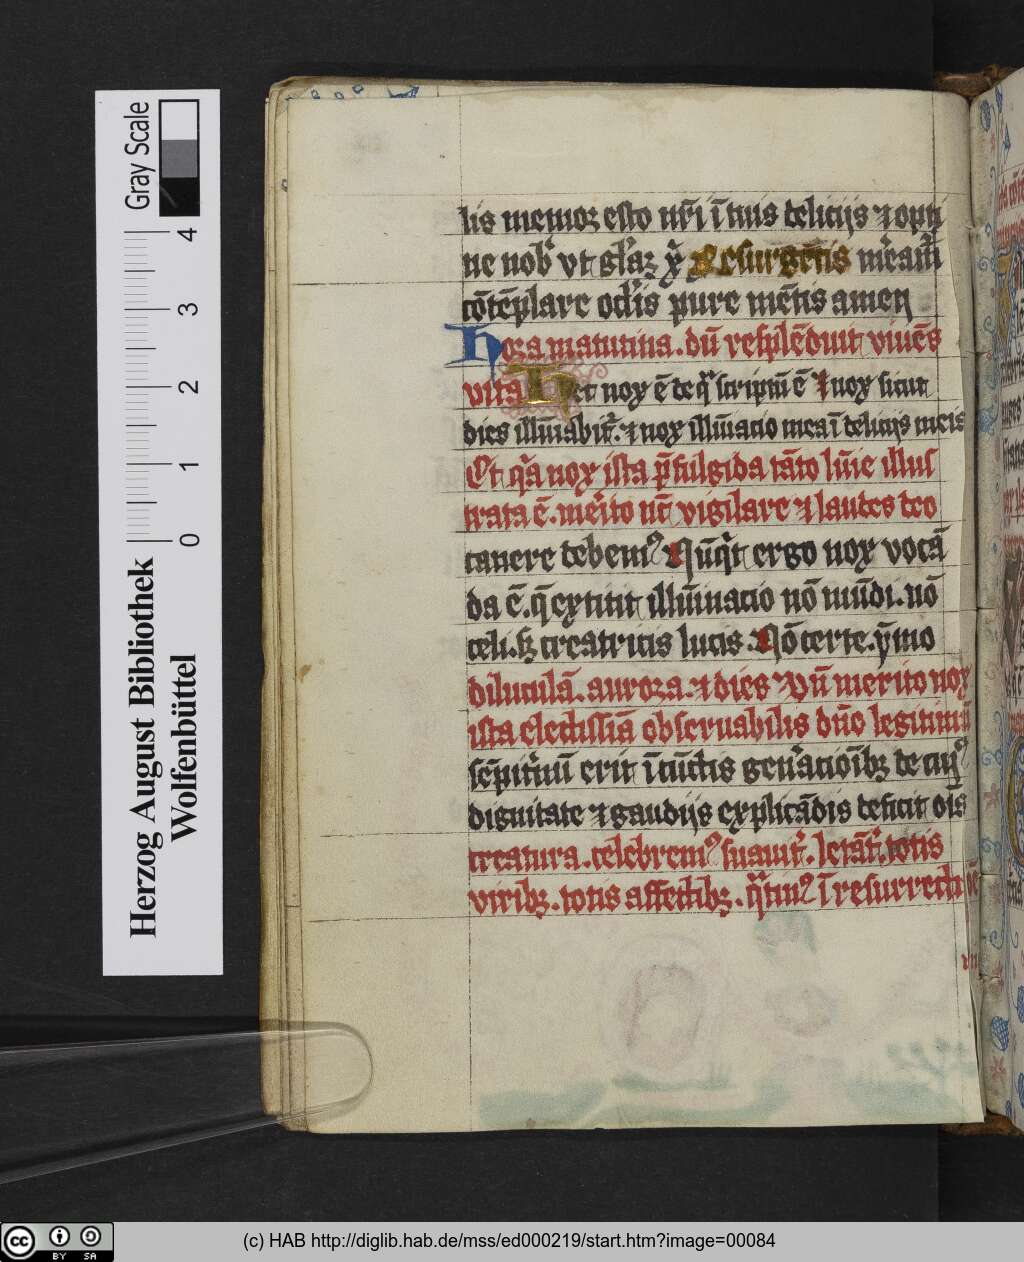 Gray Scale
4
3
2
1
0
Herzog August Bibliothek
Wolfenbüttel
lis memor esto nr̄i ītimis deliciis ⁊ optī
ne nob᷒ vt gl̄iaꝫ xp̄i Resurgētis mēam̄
cōtēplare oclis pure mētis amen
Hora matutina. dū resplēduit viuēs
vita Hec nox ē de q̄ scriptū ē ⁊ nox sicut
dies illūiabit̄. ⁊ nox illūiatio mea ī deliciis meis
Et q̄a nox ista p̄fulgida tāto lūie illus
trata ē. merito nc̄ vigilare ⁊ laudes deo
canere debem᷒ Nūq̄t ergo nox vocā
da ē. q̄ extitit illūinatio nō mūdi. nō
celi. sꝫ creatricis lucis. Nō certe. ymo
diluculū. aurora. ⁊ dies Vn̄ merito nox
ista electissīa obseruabilis dn̄o legitimū
sēpitnū erit ī cūctis gen̄atioībꝫ de cui᷒
dignitate ⁊ gaudiis explicādis deficit oīs
creatura. celebrem᷒ suauit̄. letāt̄. totis
viribꝫ. totis affectibꝫ. q̄tin᷒ ī resurrecti
BY SA
(c) HAB http://diglib.hab.de/mss/ed000219/start.htm?image=00084